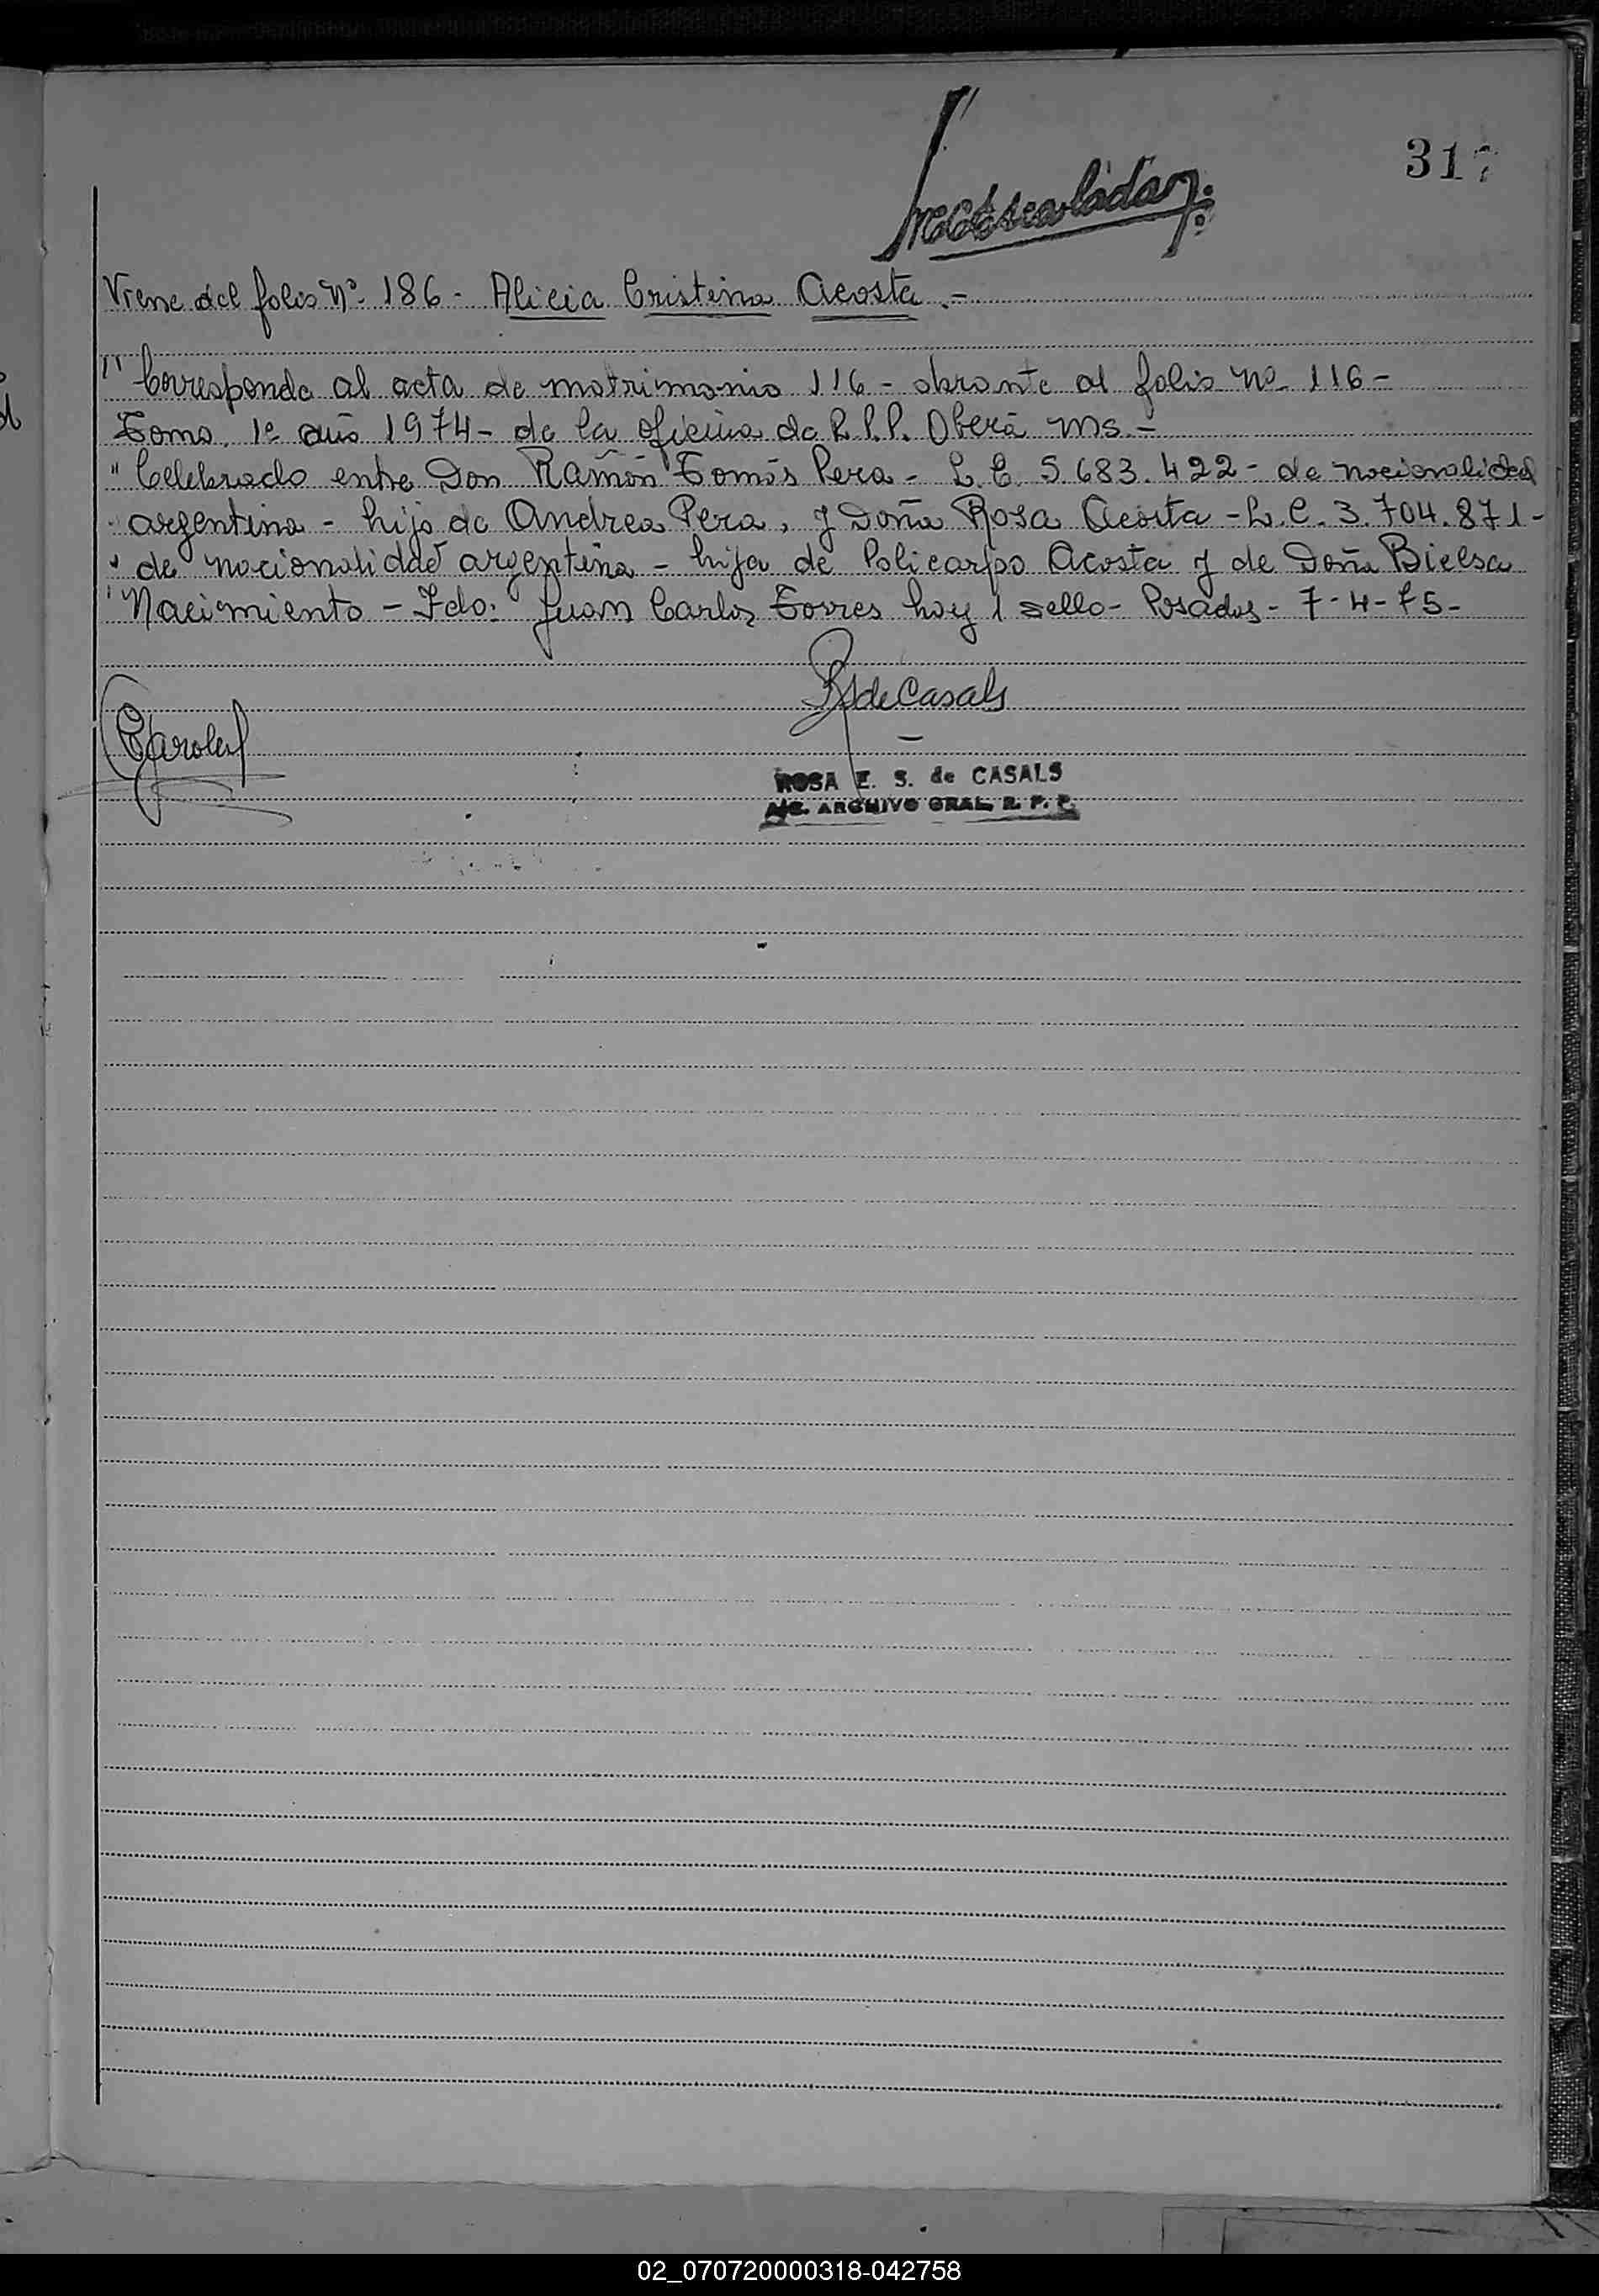 317
Viene del folio Nº. 186 - Alicia Cristina Acosta . -
" Corresponde al acta de matrimonio 116 - obrante al folio No 116 -
Tomo. 1º año 1974 - de la oficina de R.P.P. Oberá Ms. -
" Celebrado entre Don Ramón Tomás Pera - L. E. 5.683.422 - de nacionalidad
argentina - hijo de Andrea Pera, y Doña Rosa Acosta - L. C. 3.704.871 -
" de nacionalidad argentina - hija de Policarpo Acosta y de Doña Bielsa
" Nacimiento - Fdo: Juan Carlos Torres hoy 1 sello - Posadas - 7-4-75 -
de Casals
ROSA E. S. de CASALS
ARCHIVO GRAL. R. P. P.
02_070720000318-042758